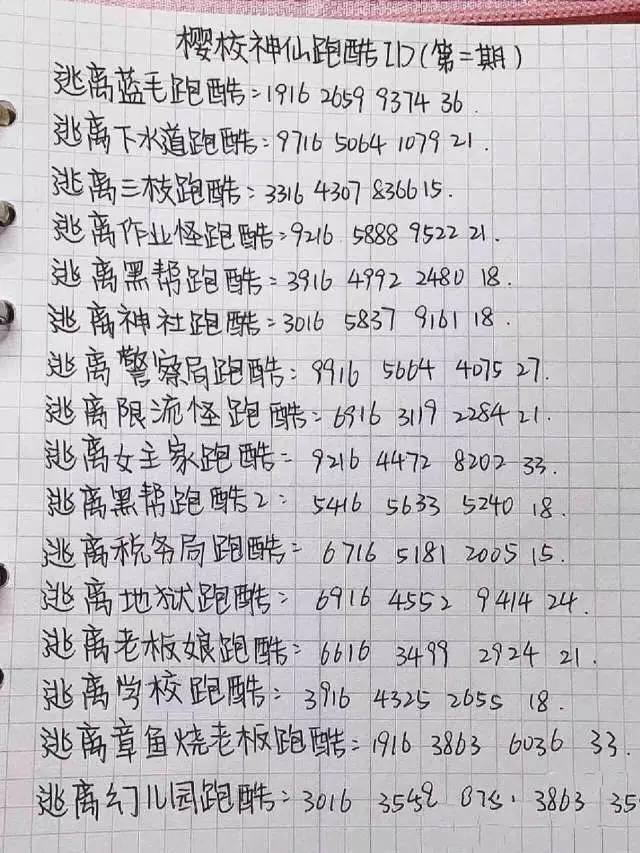 樱校神仙跑酷ID(第二期)
逃离蓝毛跑酷:1916 2659 9374 36.
逃离下水道跑酷:9716 5064 1079 21.
逃离三枝跑酷:3316 4307 8366 15.
逃离作业怪跑酷:9216 5888 9522 21.
逃离黑帮跑酷:3916 4992 2480 18.
逃离神社跑酷:3016 5837 9161 18.
逃离警察局跑酷:9916 5664 4075 27.
逃离限流怪跑酷:6916 3119 2284 21.
逃离女主家跑酷:9216 4472 8202 33.
逃离黑帮跑酷2:5416 5633 5240 18.
逃离税务局跑酷:6716 5181 2005 15.
逃离地狱跑酷:6916 4552 9414 24.
逃离老板娘跑酷:6616 3499 2924 21.
逃离学校跑酷:3916 4325 2655 18.
逃离章鱼烧老板跑酷:1916 3863 6036 33.
逃离幻儿园跑酷:3016 3863 35